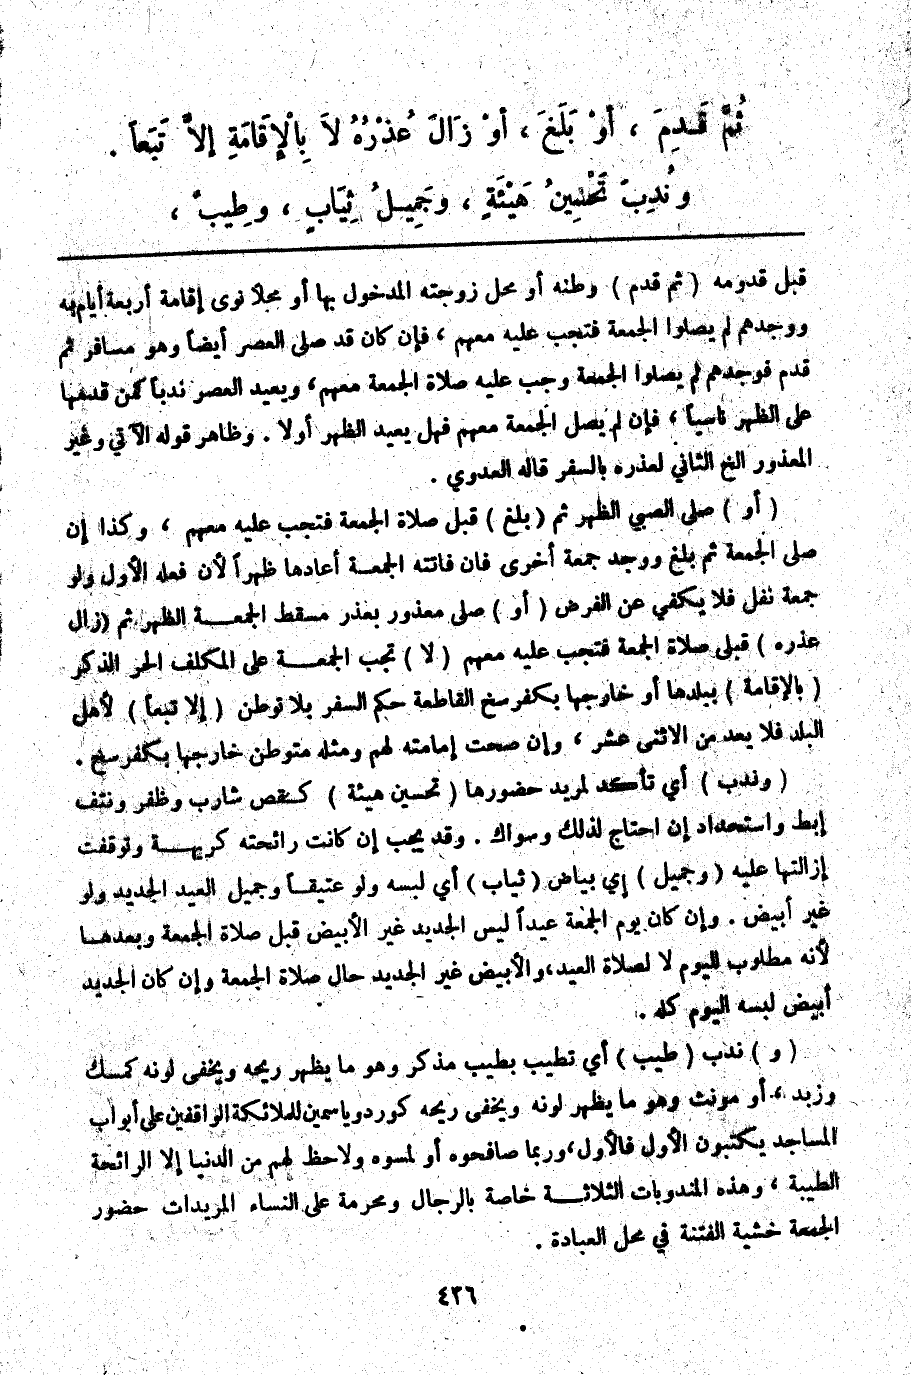 ثُمَّ قَدِمَ ، أَوْ بَلَغَ ، أَوْ زَالَ عُذْرُهُ لاَ بِالْإِقَامَةِ إِلاَّ تَبَعاً .
وَنُدِبَ تَحْسِينُ هَيْئَةٍ ، وَجَمِيلُ ثِيَابٍ ، وَطِيبٌ ،
قبل قدومه ( ثم قدم ) وطنه أو محل زوجته المدخول بها أو محلاً نوى إقامة أربعة أيام به
ووجدهم لم يصلوا الجمعة فتجب عليه معهم ، فإن كان قد صلى العصر أيضاً وهو مسافر ثم
قدم فوجدهم لم يصلوا الجمعة وجب عليه صلاة الجمعة معهم، ويعيد العصر ندباً كمن قدمها
على الظهر ناسياً ، فإن لم يصل الجمعة معهم فهل يعيد الظهر أولا . وظاهر قوله الآتي وغير
المعذور الخ الثاني لعذره بالسفر قاله العدوي .
( أو ) صلى الصبي الظهر ثم ( بلغ ) قبل صلاة الجمعة فتجب عليه معهم ، وكذا إن
صلى الجمعة ثم بلغ ووجد جمعة أخرى فان فاتته الجمعة أعادها ظهراً لأن فعله الأول ولو
جمعة نفل فلا يكفي عن الفرض ( أو ) صلى معذور بعذر مسقط الجمعة الظهر ثم ( زال
عذره ) قبل صلاة الجمعة فتجب عليه معهم ( لا ) تجب الجمعة على المكلف الحر الذكر
( بالإقامة ) ببلدها أو خارجها بكفرسخ القاطعة حكم السفر بلا توطن ( إلا تبعاً ) لأهل
البلد فلا يعد من الاثنى عشر ، وإن صحت إمامته لهم ومثله متوطن خارجها بكفرسخ .
( وندب ) أي تأكد لمريد حضورها ( تحسين هيئة ) كقص شارب وظفر ونتف
إبط واستحداد إن احتاج لذلك وسواك . وقد يجب إن كانت رائحته كريهة وتوقفت
إزالتها عليه ( وجميل ) إي بياض ( ثياب ) أي لبسه ولو عتيقاً وجميل العيد الجديد ولو
غير أبيض . وإن كان يوم الجمعة عيداً لبس الجديد غير الأبيض قبل صلاة الجمعة وبعدها
لأنه مطلوب لليوم لا لصلاة العيد، والأبيض غير الجديد حال صلاة الجمعة وإن كان الجديد
أبيض لبسه اليوم كله .
( و ) ندب ( طيب ) أي تطيب بطيب مذكر وهو ما يظهر ريحه ويخفى لونه كمسك
وزبد ، أو مونث وهو ما يظهر لونه ويخفى ريحه كورد وياسمين للملائكة الواقفين على أبواب
المساجد يكتبون الأول فالأول، وربما صافحوه أو لمسوه ولاحظ لهم من الدنيا إلا الرائحة
الطيبة ، وهذه المندوبات الثلاثة خاصة بالرجال ومحرمة على النساء المزيدات حضور
الجمعة خشية الفتنة في محل العبادة .
٤٣٦